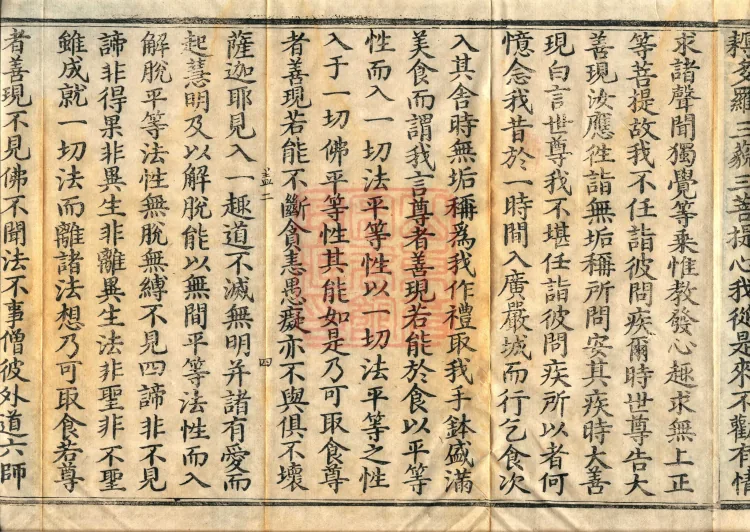 耨多羅三藐三菩提心我從是來不勸有情
求諸聲聞獨覺等乘惟教發心趣求無上正
等菩提故我不任詣彼問疾爾時世尊告大
善現汝應往詣無垢稱所問安其疾時大善
現白言世尊我不堪任詣彼問疾所以者何
憶念我昔於一時間入廣嚴城而行乞食次
入其舍時無垢稱爲我作禮取我手鉢盛滿
美食而謂我言尊者善現若能於食以平等
性而入一切法平等性以一切法平等之性
入于一切佛平等性其能如是乃可取食尊
者善現若能不斷貪恚愚癡亦不與俱不壞
蓋二 四
薩迦耶見入一趣道不滅無明并諸有愛而
起慧明及以解脫能以無間平等法性而入
解脫平等法性無脫無縛不見四諦非不見
諦非得果非異生非離異生法非聖非不聖
雖成就一切法而離諸法想乃可取食若尊
者善現不見佛不聞法不事僧彼外道六師